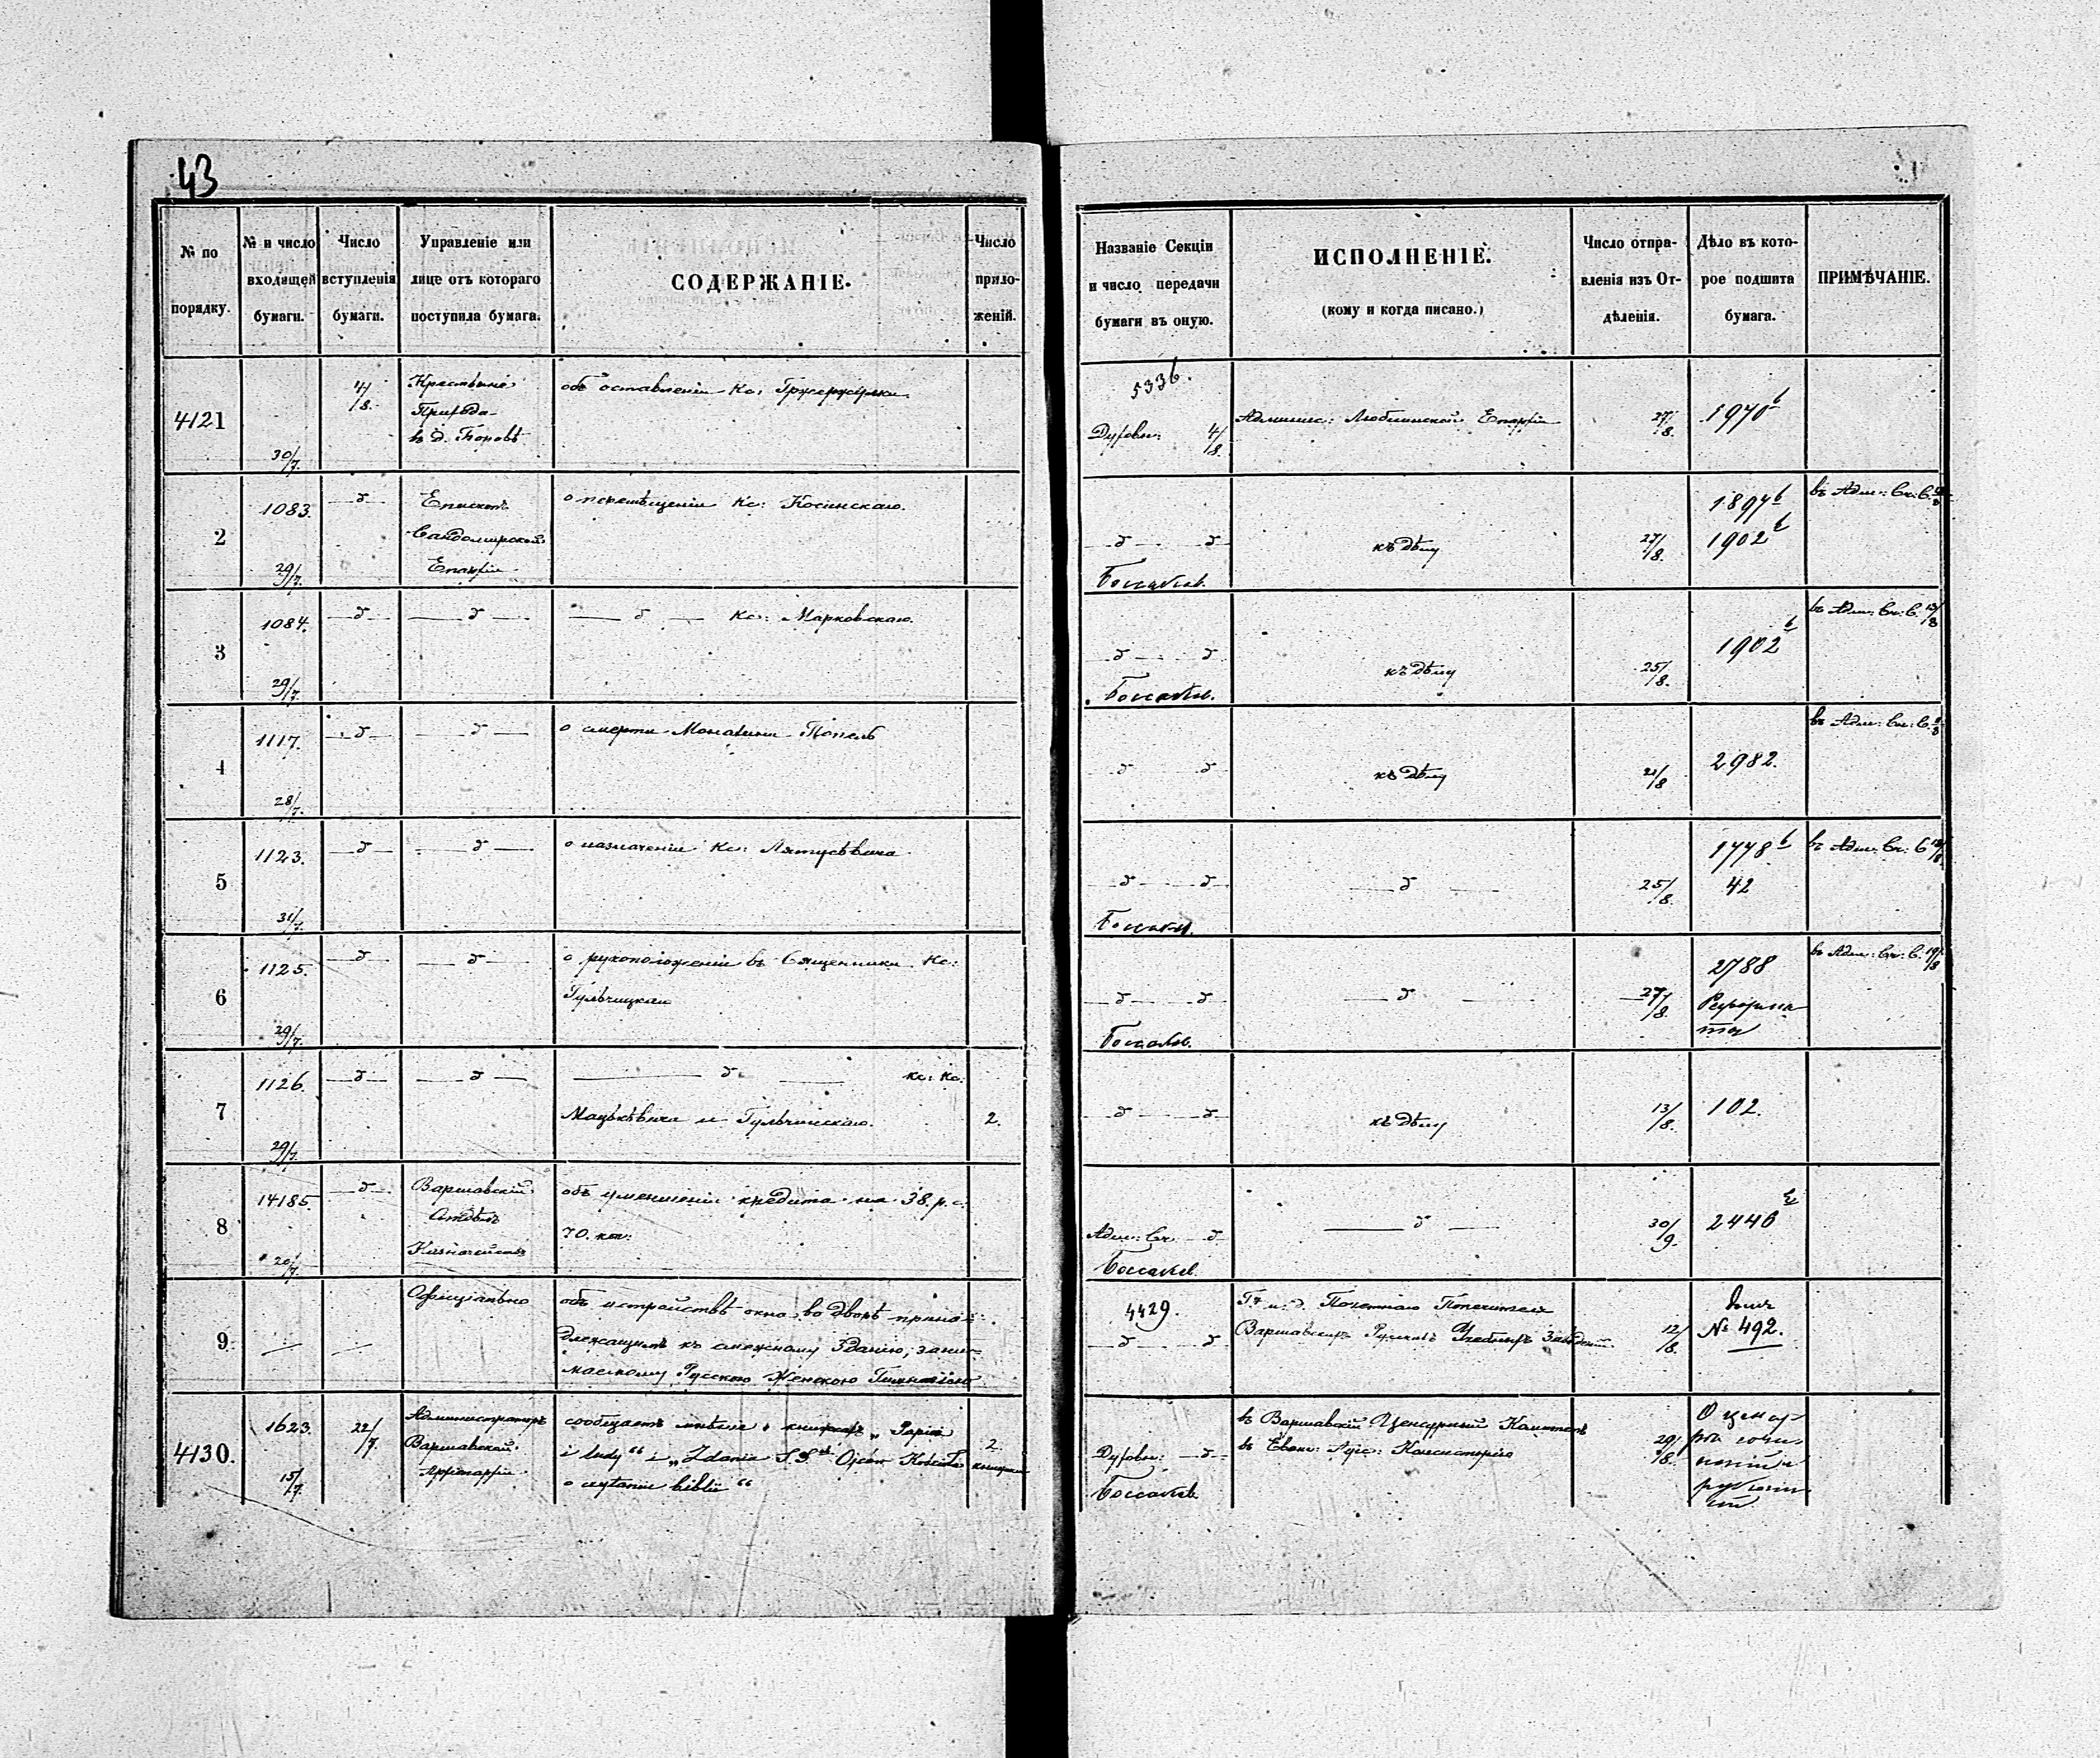 43
№ по порядку.
№ и число входящей бумаги.
Число вступленія бумаги.
Управленіе или лице отъ котораго поступила бумага.
СОДЕРЖАНІЕ.
Число приложеній.
Названіе Секціи и число передачи бумаги въ оную.
ИСПОЛНЕНІЕ.
(кому и когда писано.)
Число отправленія изъ Отдѣленія.
Дѣло въ которое подшита бумага.
ПРИМѢЧАНІЕ.
4121
30/7.
4/8.
Крестьяне
Прихода
въ д. Боровѣ
объ оставленіи Кс:
5336.
Духовн: 4/8.
Админис: Люблинской Епархіи
27/8.
1970 b
2
1083.
29/7.
— d —
Епископъ
Сандомирской
Епархіи
о перемѣщеніи Кс: Косинскаго.
— d — d —
къ дѣлу
27/8.
1897 b
1902 b
въ Адм: Сч: С.
3
1084.
29/7.
— d —
— d —
— d — Кс: Марковскаго.
— d — d
къ дѣлу
25/8.
1902 b
въ Адм: Сч: С. 13/8
4
1117.
28/7.
— d —
— d —
о смерти Монахини Попель
— d — d —
къ дѣлу
21/8
2982.
въ Адм: Сч: С.
5
1123.
31/7.
— d —
— d —
о назначеніи Кс:
— d — d —
— d —
25/8.
1778 b
42
въ Адм: Сч: С
6
1125.
29/7.
— d —
— d —
о рукоположеніи въ Священники Кс:
— d — d
— d —
27/8.
2788
Реформа
ты
въ Адм: Сч: С. 19/8
7
1126.
29/7.
— d —
— d —
— d — кс: кс:
Мацькѣвича и Гульчинскаго.
2.
— d — d —
къ дѣлу
13/8.
102.
8
14185.
20/7.
— d —
Варшавскій
Отдѣлъ
Казначейства
объ уменьшеніи кредита на 38. р. с.
70. коп:
Адм: Сч. — d
— d —
30/9.
2446
9
Офиціально
объ устройствѣ окна во дворѣ принад-
длежащимъ къ смежному зданію, зани-
маемому Русскою Женскою Гимназіею
4429.
— d — d
Г. и. д. Почетнаго Попечителя
Варшавскихъ Русскихъ Учебныхъ Заведеній
12/8.
№ 492.
4130.
1623.
15/7.
22/7.
Администраторъ
Варшавской
Архіепархіи
сообщаетъ мнѣніе о книжкахъ „Papież
i ludy“ i „Zdania S.S. Ojców Kościoła
o czytaniu biblii“
2.
книжки
Духовн: — d —
въ Варшавскій Цензурный Комитетъ
въ Еванг: Аугс: Консисторію
29/8.
О цензу-
рѣ сочи-
неній и